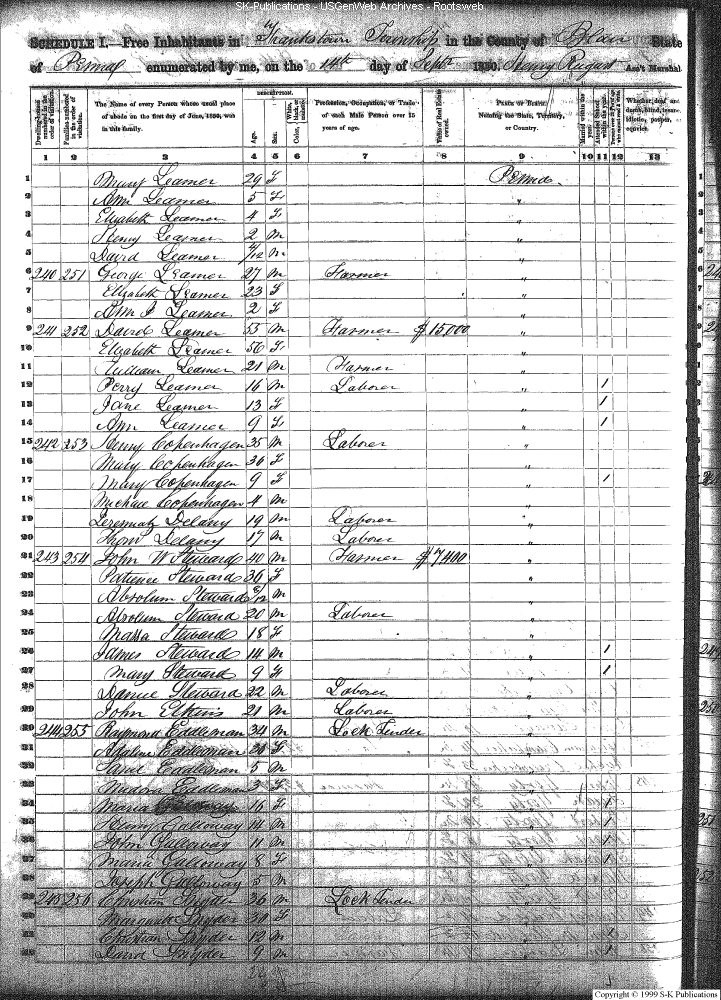 SK-Publications - USGenWeb Archives - Rootsweb
SCHEDULE I.—Free Inhabitants in Frankstown Township in the County of Blair State
of Penna enumerated by me, on the 14th day of Sept 1850. Henry Ass't Marshal
Dwelling-houses numbered in the order of visitation.
Families numbered in the order of visitation.
The Name of every Person whose usual place of abode on the first day of June, 1850, was in this family.
DESCRIPTION.
Age.
Sex.
Color, White, black, or mulatto.
Profession, Occupation, or Trade of each Male Person over 15 years of age.
Value of Real Estate owned.
PLACE OF BIRTH. Naming the State, Territory, or Country.
Married within the year.
Attended School within the year.
Whether deaf and dumb, blind, insane, idiotic, pauper, or convict.
1 2 3 4 5 6 7 8 9 10 11 12 13
1 Leamer 29 F Penna
2 Ann Leamer 5 F "
3 Elizabeth Leamer 4 F "
4 Henry Leamer 2 M "
5 David Leamer /12 M "
6 240 251 George Leamer 27 M Farmer "
7 Elizabeth Leamer 23 F "
8 Ann Leamer 2 F "
9 241 252 David Leamer 53 M Farmer $15,000 "
10 Elizabeth Leamer 56 F "
11 William Leamer 21 M Farmer "
12 Perry Leamer 16 M Laborer " 1
13 Jane Leamer 13 F " 1
14 Ann Leamer 9 F " 1
15 242 253 Henry Copenhagen 35 M Laborer "
16 Mary Copenhagen 36 F "
17 Mary Copenhagen 9 F " 1
18 Michael Copenhagen 4 M "
19 Delany 19 M Laborer "
20 Thom Delany 17 M Laborer "
21 243 254 John W Steward 40 M Farmer $7,400 "
22 Patience Steward 36 F "
23 Absolum Steward /12 M "
24 Absolum Steward 20 M Laborer "
25 Massa Steward 18 F "
26 James Steward 14 M " 1
27 Mary Steward 9 F " 1
28 Daniel Steward 22 M Laborer "
29 John Elkins 21 M Laborer "
30 244 255 Raymond Eddleman 34 M Lock Tender "
31 Adaline Eddleman F "
32 Eddleman 5 M "
33 Medora Eddleman 3 F "
34 Maria 16 F " 1
35 Henry Galloway 14 M " 1
36 John Galloway 11 M " 1
37 Maria Galloway 8 F " 1
38 Joseph Galloway 5 M "
39 245 256 Christian Snyder 36 M Lock Tender "
40 Margaret Snyder 30 F "
41 Christian Snyder 12 M " 1
42 David Snyder 9 M " 1
Copyright © 1999 S-K Publications